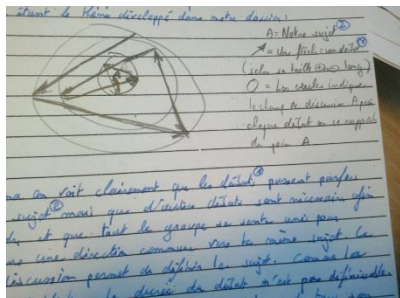 étant le thème développé dans notre dossier:
A = Notre sujet ②
= Une flèche = un débat ①
(selon sa taille ⊕ ou ⊖ long)
O = Les cercles indiquent
le champ de discussion Après
chaque débat on se rapproche
du point A
on voit clairement que les débats ① peuvent parfois
sujet ② mais que d'autres débats sont nécessaire afin
et que tout le groupe se sente unis pour
une direction commune vers le même sujet. La
discussion permet de définir le sujet. Comme la
la durée du débat n'est pas définissable